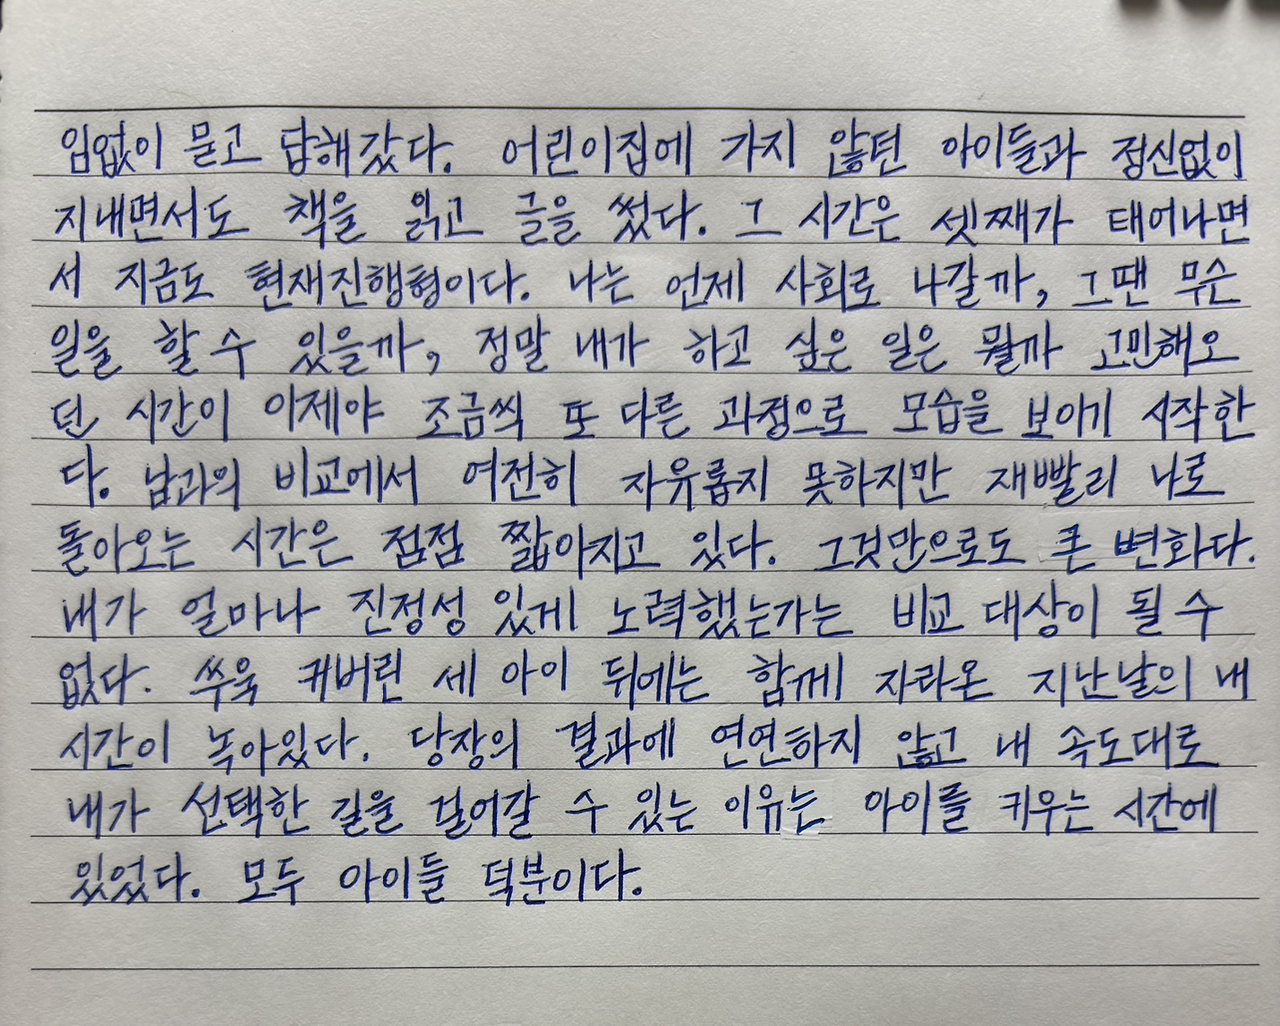 임없이 묻고 답해갔다. 어린이집에 가지 않던 아이들과 정신없이
지내면서도 책을 읽고 글을 썼다. 그 시간은 셋째가 태어나면
서 지금도 현재진행형이다. 나는 언제 사회로 나갈까, 그땐 무슨
일을 할 수 있을까, 정말 내가 하고 싶은 일은 뭘까 고민해오
던 시간이 이제야 조금씩 또 다른 과정으로 모습을 보이기 시작한
다. 남과의 비교에서 여전히 자유롭지 못하지만 재빨리 나로
돌아오는 시간은 점점 짧아지고 있다. 그것만으로도 큰 변화다.
내가 얼마나 진정성 있게 노력했는가는 비교 대상이 될 수
없다. 쑤욱 커버린 세 아이 뒤에는 함께 자라온 지난날의 내
시간이 녹아있다. 당장의 결과에 연연하지 않고 내 속도대로
내가 선택한 길을 걸어갈 수 있는 이유는 아이를 키우는 시간에
있었다. 모두 아이들 덕분이다.